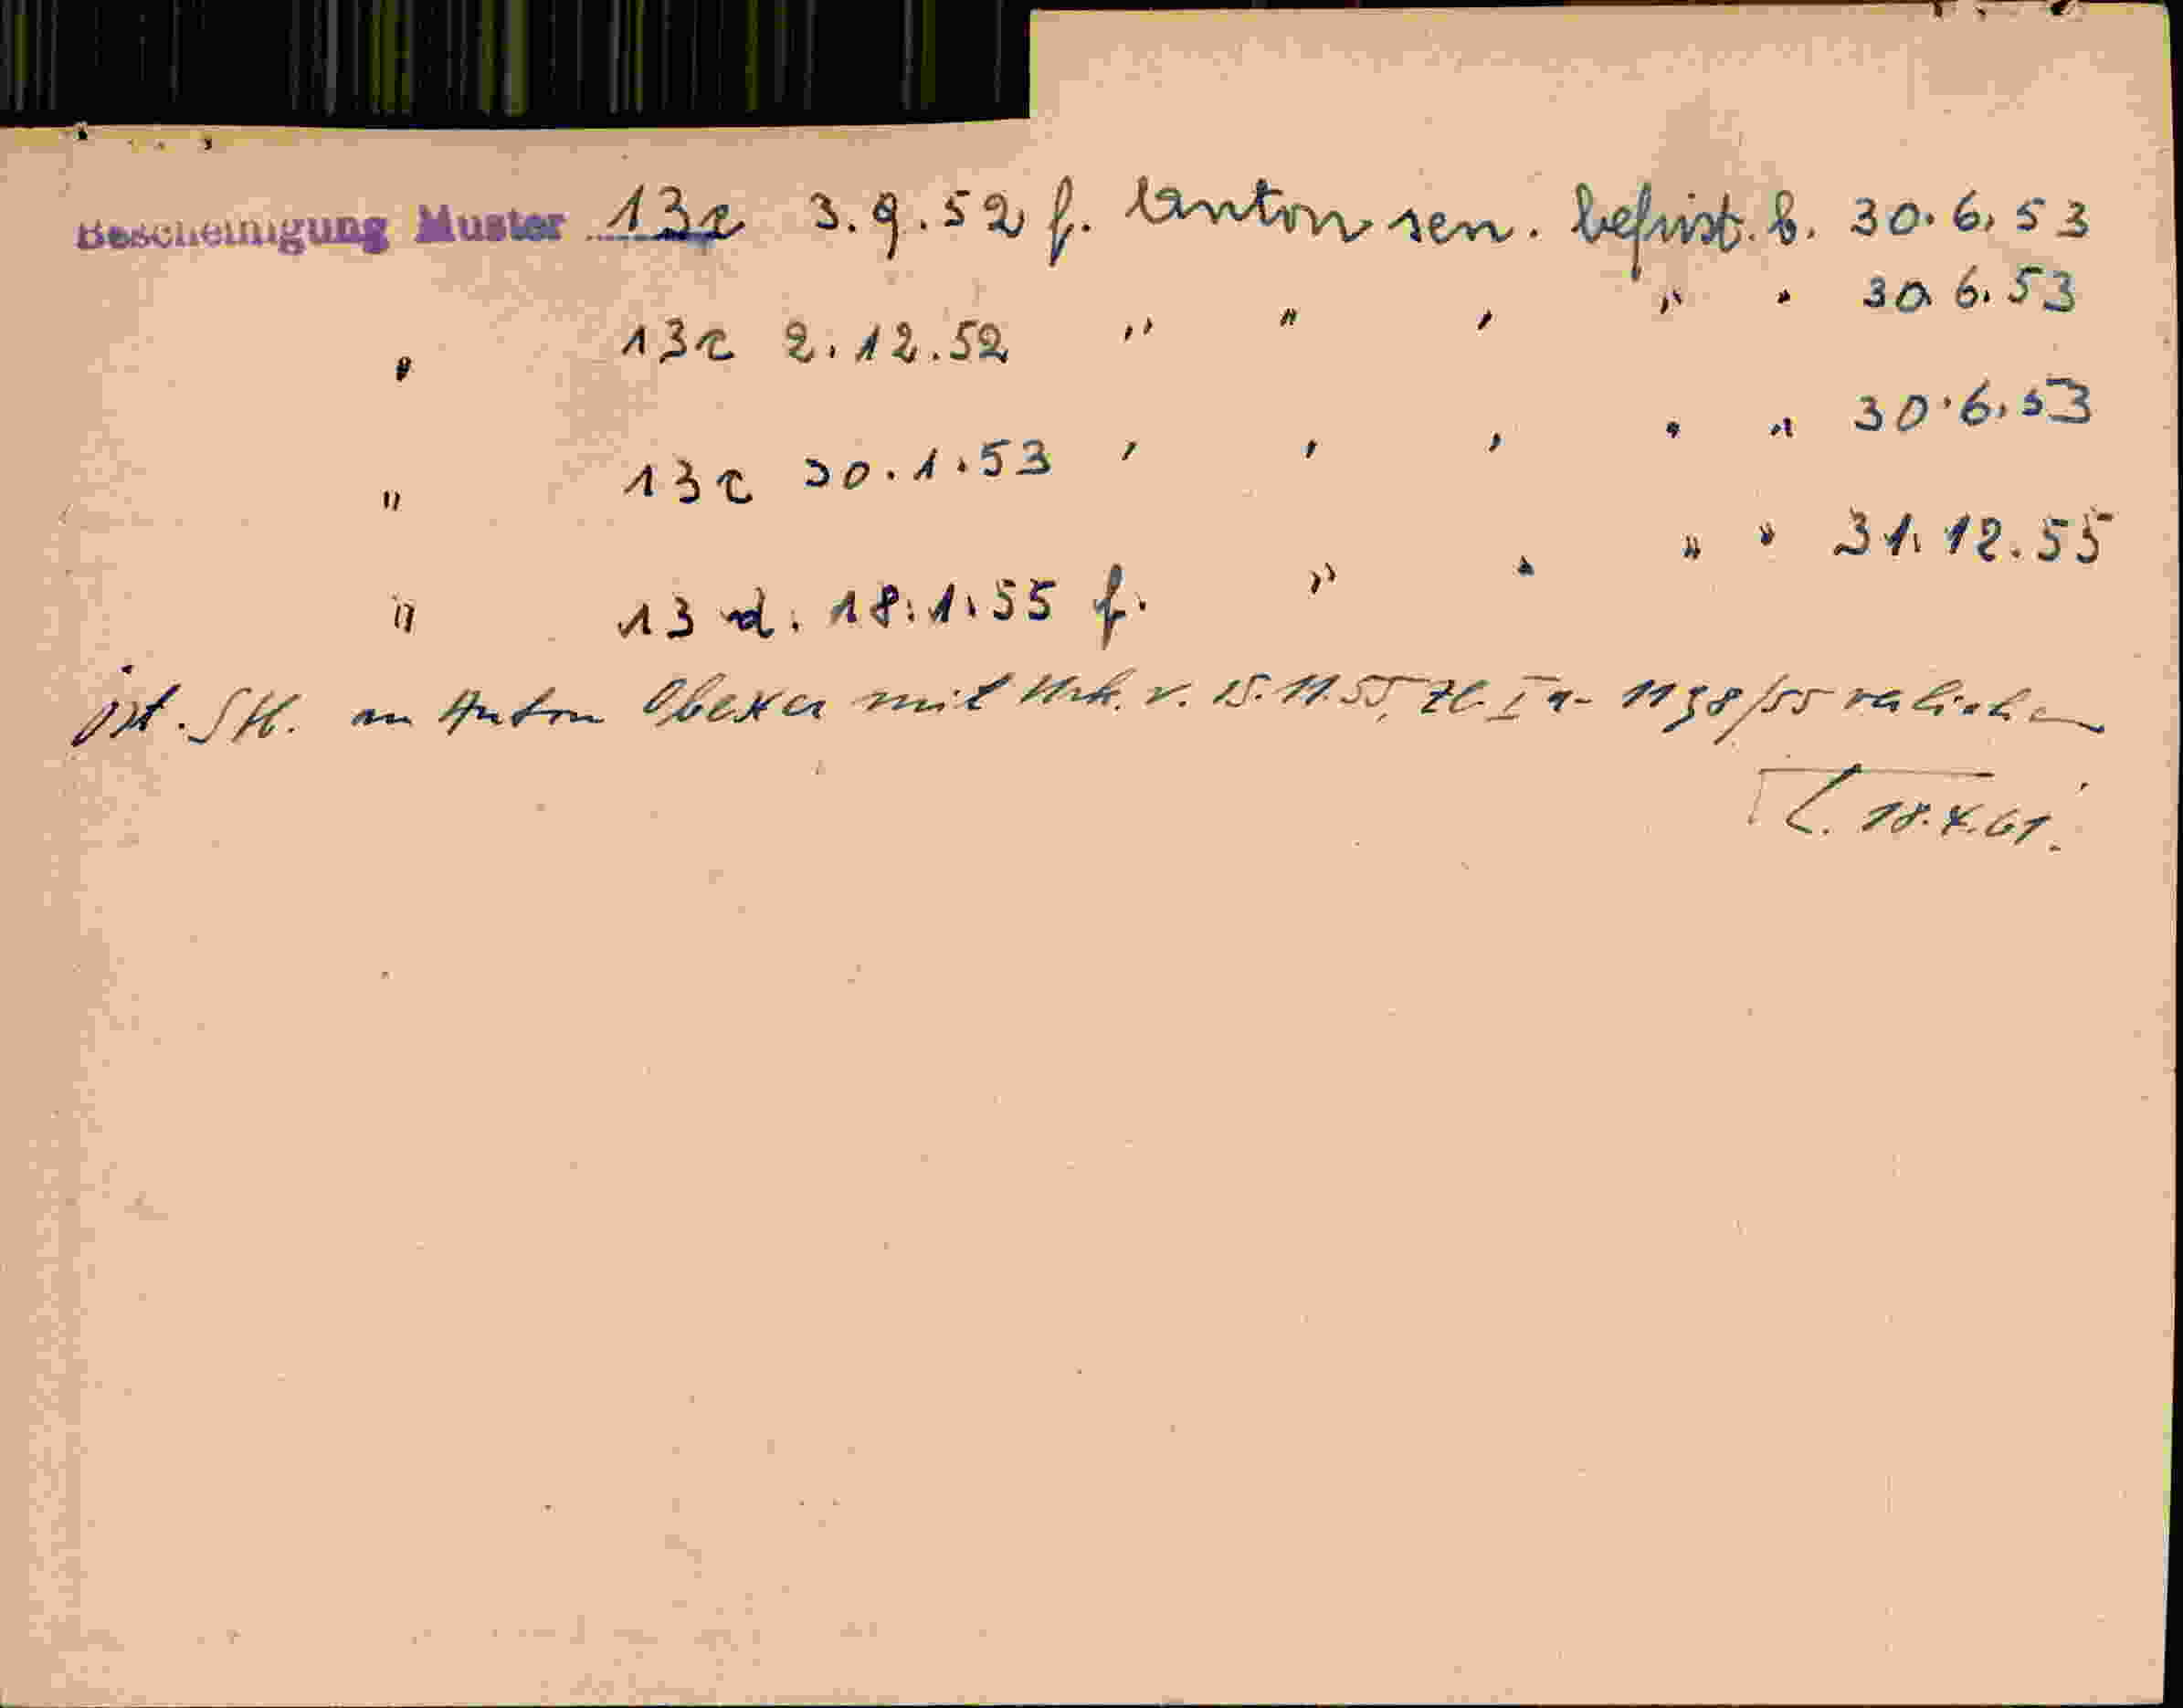 Bescheinigung Muster 13c 3.9.52 f. Anton sen. befrist. b. 30.6.53
" 13c 2.12.52 " " " " " 30.6.53
" 13c 30.1.53 " " " " " 30.6.53
" 13 d. 18.1.55 f. " " " " 31.12.55
öst. StB. an Anton Obexer mit Urk. v. 15.11.55, Zl. Ia- 1138/55 verliehen
18.4.61.